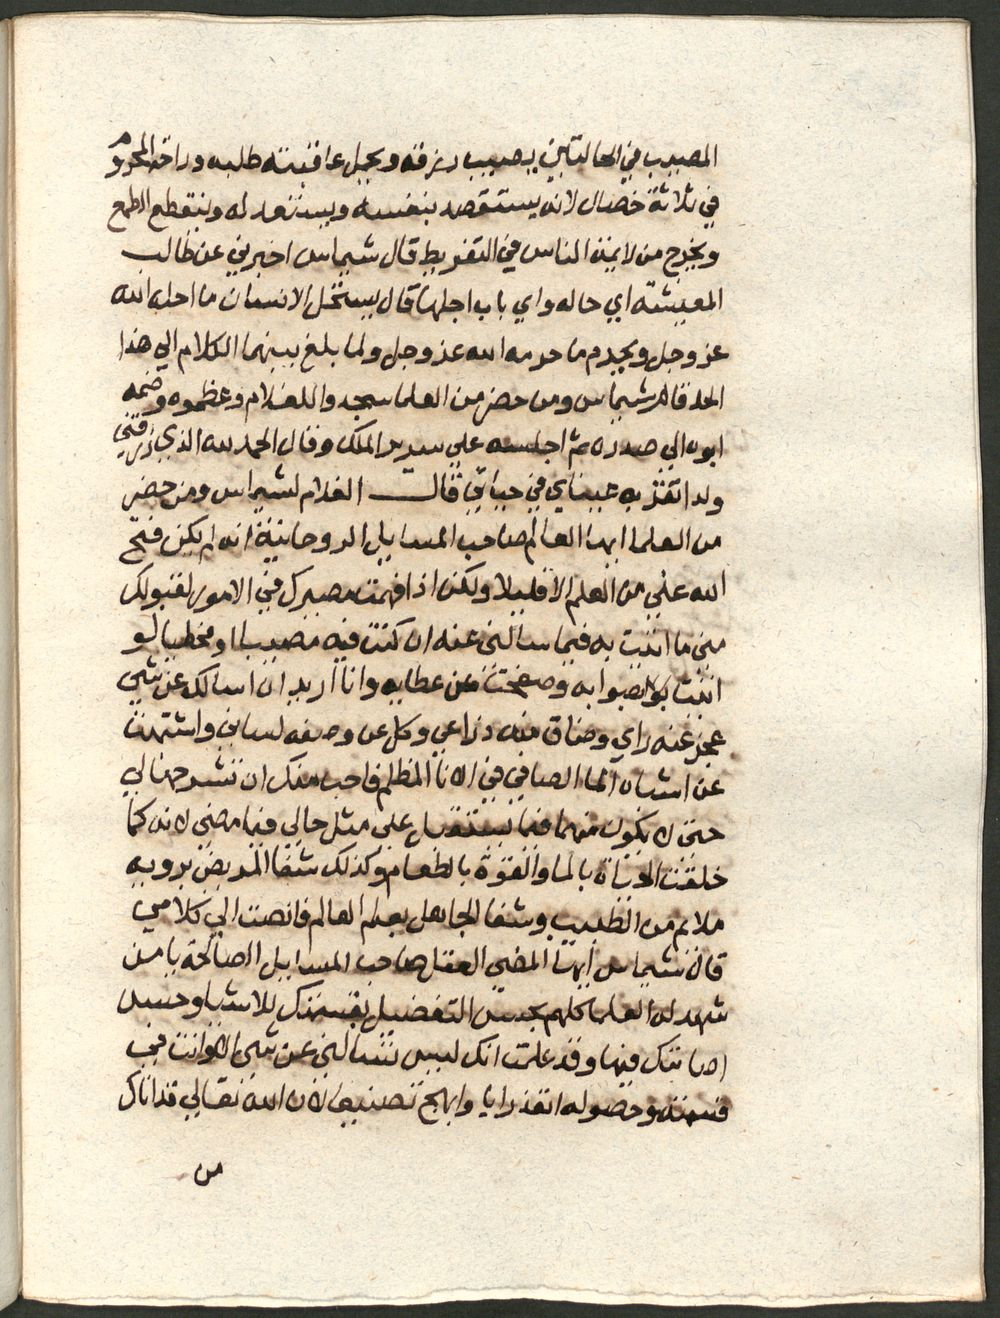 المصيب في الحالتين يصيب رزقه ويجمل عاقبته طلبه وراحة المحروم
في ثلاثة خصال لانه يستقصد بنفسه ويستعد له وينقطع الطمع
ويخرج من لايمة الناس في التفريط قال شيماس اخبرني عن طالب
المعيشة اي حاله واي باب اجلها قال يستحل الانسان ما احله الله
عز وجل ويحرم ما حرمه الله عز وجل ولما بلغ بينهما الكلام الي هذا
الحد قام شيماس ومن حضر من العلما سجدوا للغلام وعظموه وضمه
ابوه الي صدره ثم اجلسه علي سرير الملك وقال الحمد لله الذي رزقني
ولد اتقر به عيناي في حياتي قالت الغلام لشيماس ومن حضر
من العلما ايها العالم صاحب المسايل الروحانية انه لم يكن فتح
الله علي من العلم الا قليلا ولكن اذا فهمت مصيرك في الامور لقبولك
مني ما اتيت به فيما سالتني عنه ان كنت فيه مصيبا او مخطيا لو
اتيت بالصوابه وصفحت عن عطايه وانا اريد ان اسالك عن شي
عجز عنه راي وضاق منه ذراعي وكل عن وصفه لساني واشتبهت
عن اشتباه الما الصافي في الانا المظلم فاحب منك ان تشرحها لي
حتي لا يكون منها فيما يستقبل علي مثل حالي فيما مضي لانه كما
خلقت الحياة بالما والقوة بالطعام وكذلك شفا المريض برويه
ملايم من الطبيب وشفا الجاهل بعلم العالم فانصت الي كلامي
قال شيماس ايها المضي العقل صاحب المسايل الصالحة يا من
شهد له العلما كلهم بحسن التفضيل بقسمتك للاشيا وحسن
اصابتك فيها وقد علمت انك ليس تسالني عن شي الا وانت في
قسمته وحصوله انقذ رايا وابهج تصنيفا لان الله تعالي قد اتاك
من